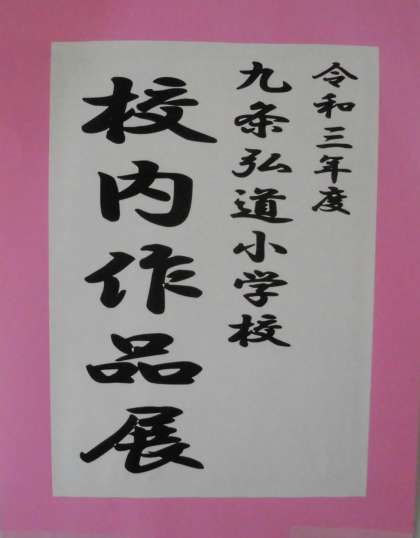 令和三年度
九条弘道小学校
校内作品展